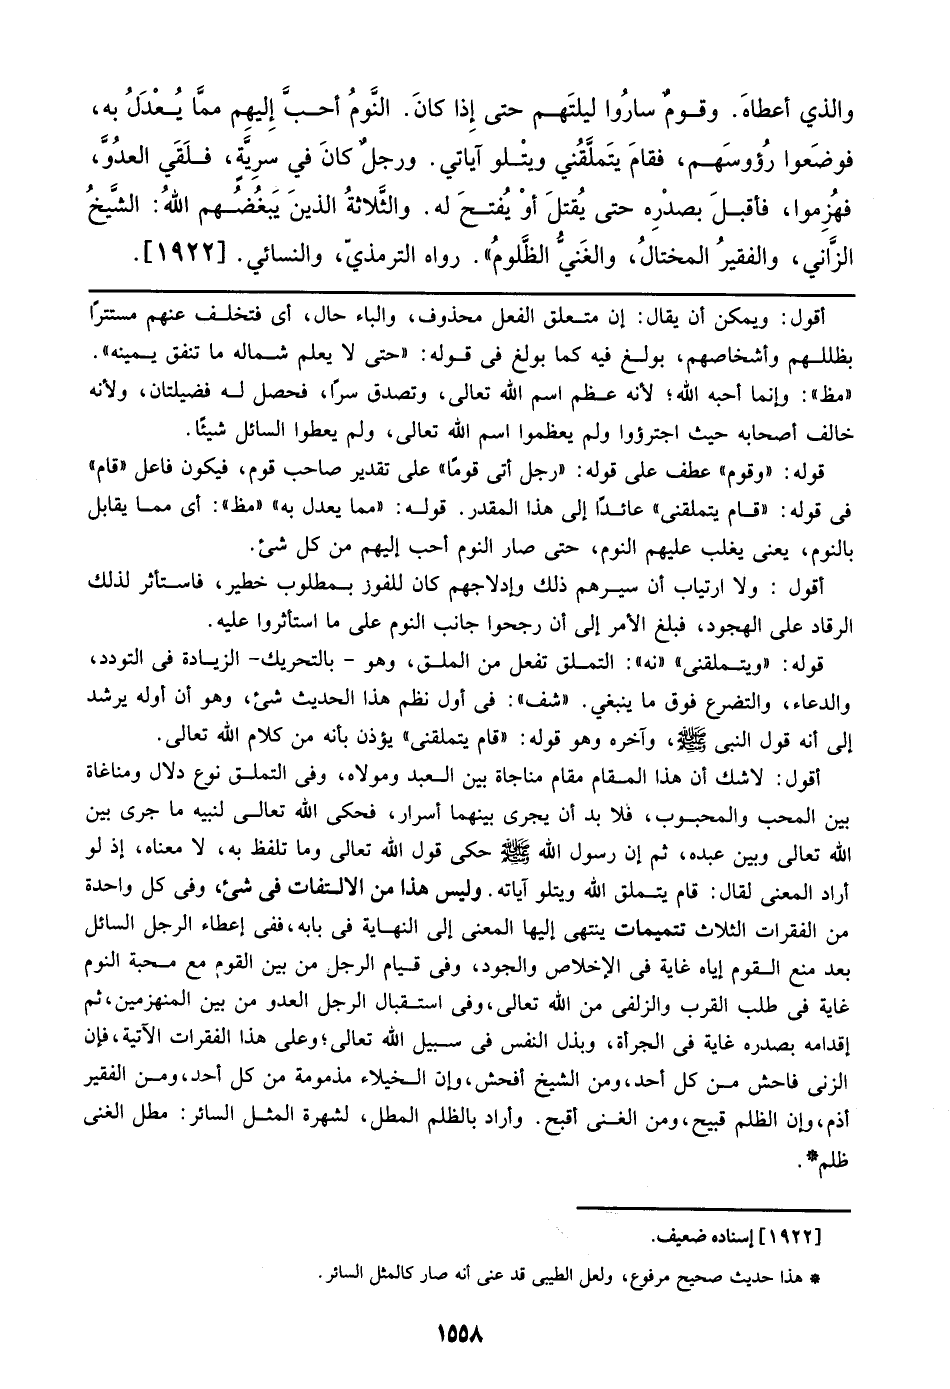 والذي أعطاهَ. وقومٌ سارُوا ليلتَهم حتى إذا كانَ. النَّومُ أحبَّ إليهِم ممَّا يُعْدَلُ به،
فوضَعوا رُؤوسَهم، فقامَ يَتملَّقُني ويتْلو آياتي. ورجلٌ كانَ في سريَّةٍ، فلَقَي العدوَّ،
فهُزِموا، فأقبلَ بصدْرِه حتى يقُتلَ أوْ يُفتحَ له. والثَّلاثةُ الذينَ يَبغُضُهم اللهُ: الشَّيخُ
الزَّاني، والفقيرُ المختالُ، والغَنيُّ الظَّلومُ». رواه الترمذيّ، والنسائي. [١٩٢٢].
أقول: ويمكن أن يقال: إن متعلق الفعل محذوف، والباء حال، أى فتخلف عنهم مستترًا
بظللهم وأشخاصهم، بولغ فيه كما بولغ فى قوله: «حتى لا يعلم شماله ما تنفق يمينه».
«مظ»: وإنما أحبه الله؛ لأنه عظم اسم الله تعالى، وتصدق سرًا، فحصل له فضيلتان، ولأنه
خالف أصحابه حيث اجترؤوا ولم يعظموا اسم الله تعالى، ولم يعطوا السائل شيئًا.
قوله: «وقوم» عطف على قوله: «رجل أتى قومًا» على تقدير صاحب قوم، فيكون فاعل «قام»
فى قوله: «قام يتملقنى» عائدًا إلى هذا المقدر. قوله: «مما يعدل به» «مظ»: أى مما يقابل
بالنوم، يعنى يغلب عليهم النوم، حتى صار النوم أحب إليهم من كل شئ.
أقول : ولا ارتياب أن سيرهم ذلك وإدلاجهم كان للفوز بمطلوب خطير، فاستأثر لذلك
الرقاد على الهجود، فبلغ الأمر إلى أن رجحوا جانب النوم على ما استأثروا عليه.
قوله: «ويتملقنى» «نه»: التملق تفعل من الملق، وهو - بالتحريك- الزيادة فى التودد،
والدعاء، والتضرع فوق ما ينبغي. «شف»: فى أول نظم هذا الحديث شئ، وهو أن أوله يرشد
إلى أنه قول النبي ﷺ، وآخره وهو قوله: «قام يتملقنى» يؤذن بأنه من كلام الله تعالى.
أقول: لاشك أن هذا المقام مقام مناجاة بين العبد ومولاه، وفى التملق نوع دلال ومناغاة
بين المحب والمحبوب، فلا بد أن يجرى بينهما أسرار، فحكى الله تعالى لنبيه ما جرى بين
الله تعالى وبين عبده، ثم إن رسول الله ﷺ حكى قول الله تعالى وما تلفظ به، لا معناه، إذ لو
أراد المعنى لقال: قام يتملق الله ويتلو آياته. وليس هذا من الالتفات فى شئ، وفى كل واحدة
من الفقرات الثلاث تتميمات ينتهى إليها المعنى إلى النهاية فى بابه، ففى إعطاء الرجل السائل
بعد منع القوم إياه غاية فى الإخلاص والجود، وفى قيام الرجل من بين القوم مع محبة النوم
غاية فى طلب القرب والزلفى من الله تعالى، وفى استقبال الرجل العدو من بين المنهزمين، ثم
إقدامه بصدره غاية فى الجرأة، وبذل النفس فى سبيل الله تعالى؛ وعلى هذا الفقرات الآتية، فإن
الزنى فاحش من كل أحد، ومن الشيخ أفحش، وإن الخيلاء مذمومة من كل أحد، ومن الفقير
أذم، وإن الظلم قبيح، ومن الغنى أقبح. وأراد بالظلم المطل، لشهرة المثل السائر: مطل الغنى
ظلم*.
[١٩٢٢] إسناده ضعيف.
* هذا حديث صحيح مرفوع، ولعل الطيبى قد عنى أنه صار كالمثل السائر.
١٥٥٨